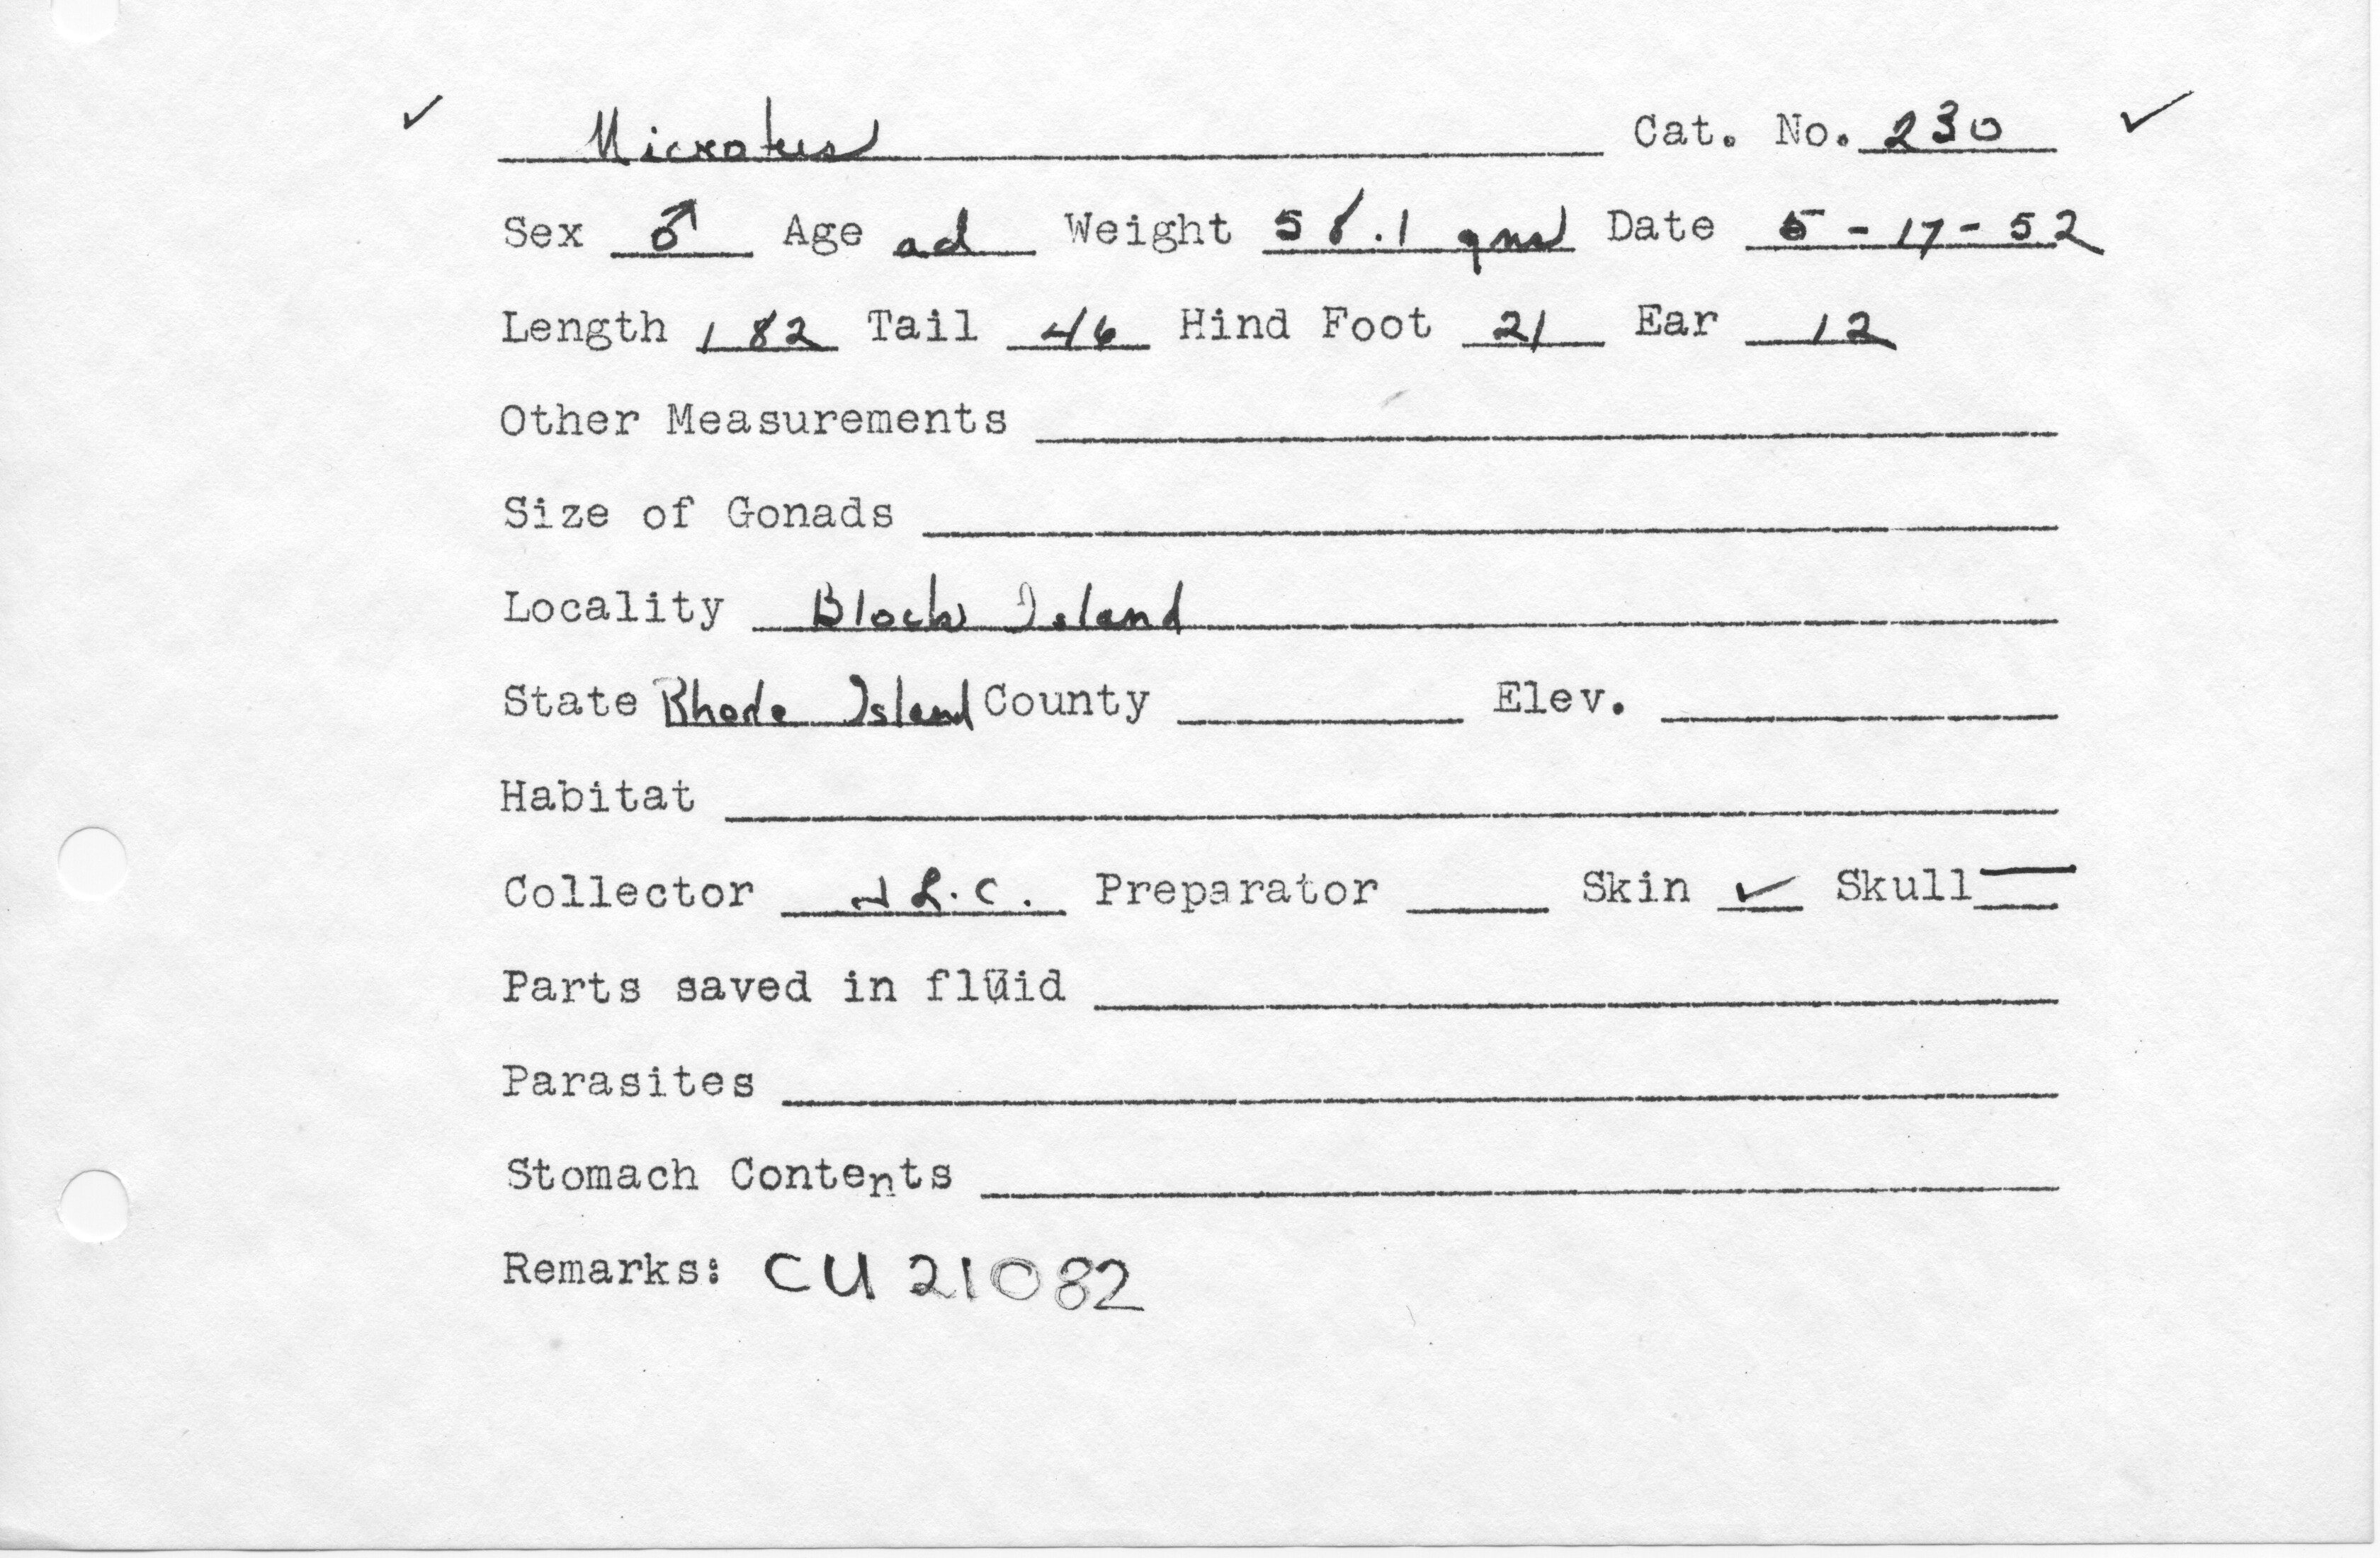 ✓ Microtus Cat. No. 230 ✓
Sex ♂ Age ad Weight 58.1 gms Date 5-17-52
Length 182 Tail 46 Hind Foot 21 Ear 12
Other Measurements
Size of Gonads
Locality Block Island
State Rhode Island County Elev.
Habitat
Collector Preparator Skin ✓ Skull —
Parts saved in fluid
Parasites
Stomach Contents
Remarks: CU 21082